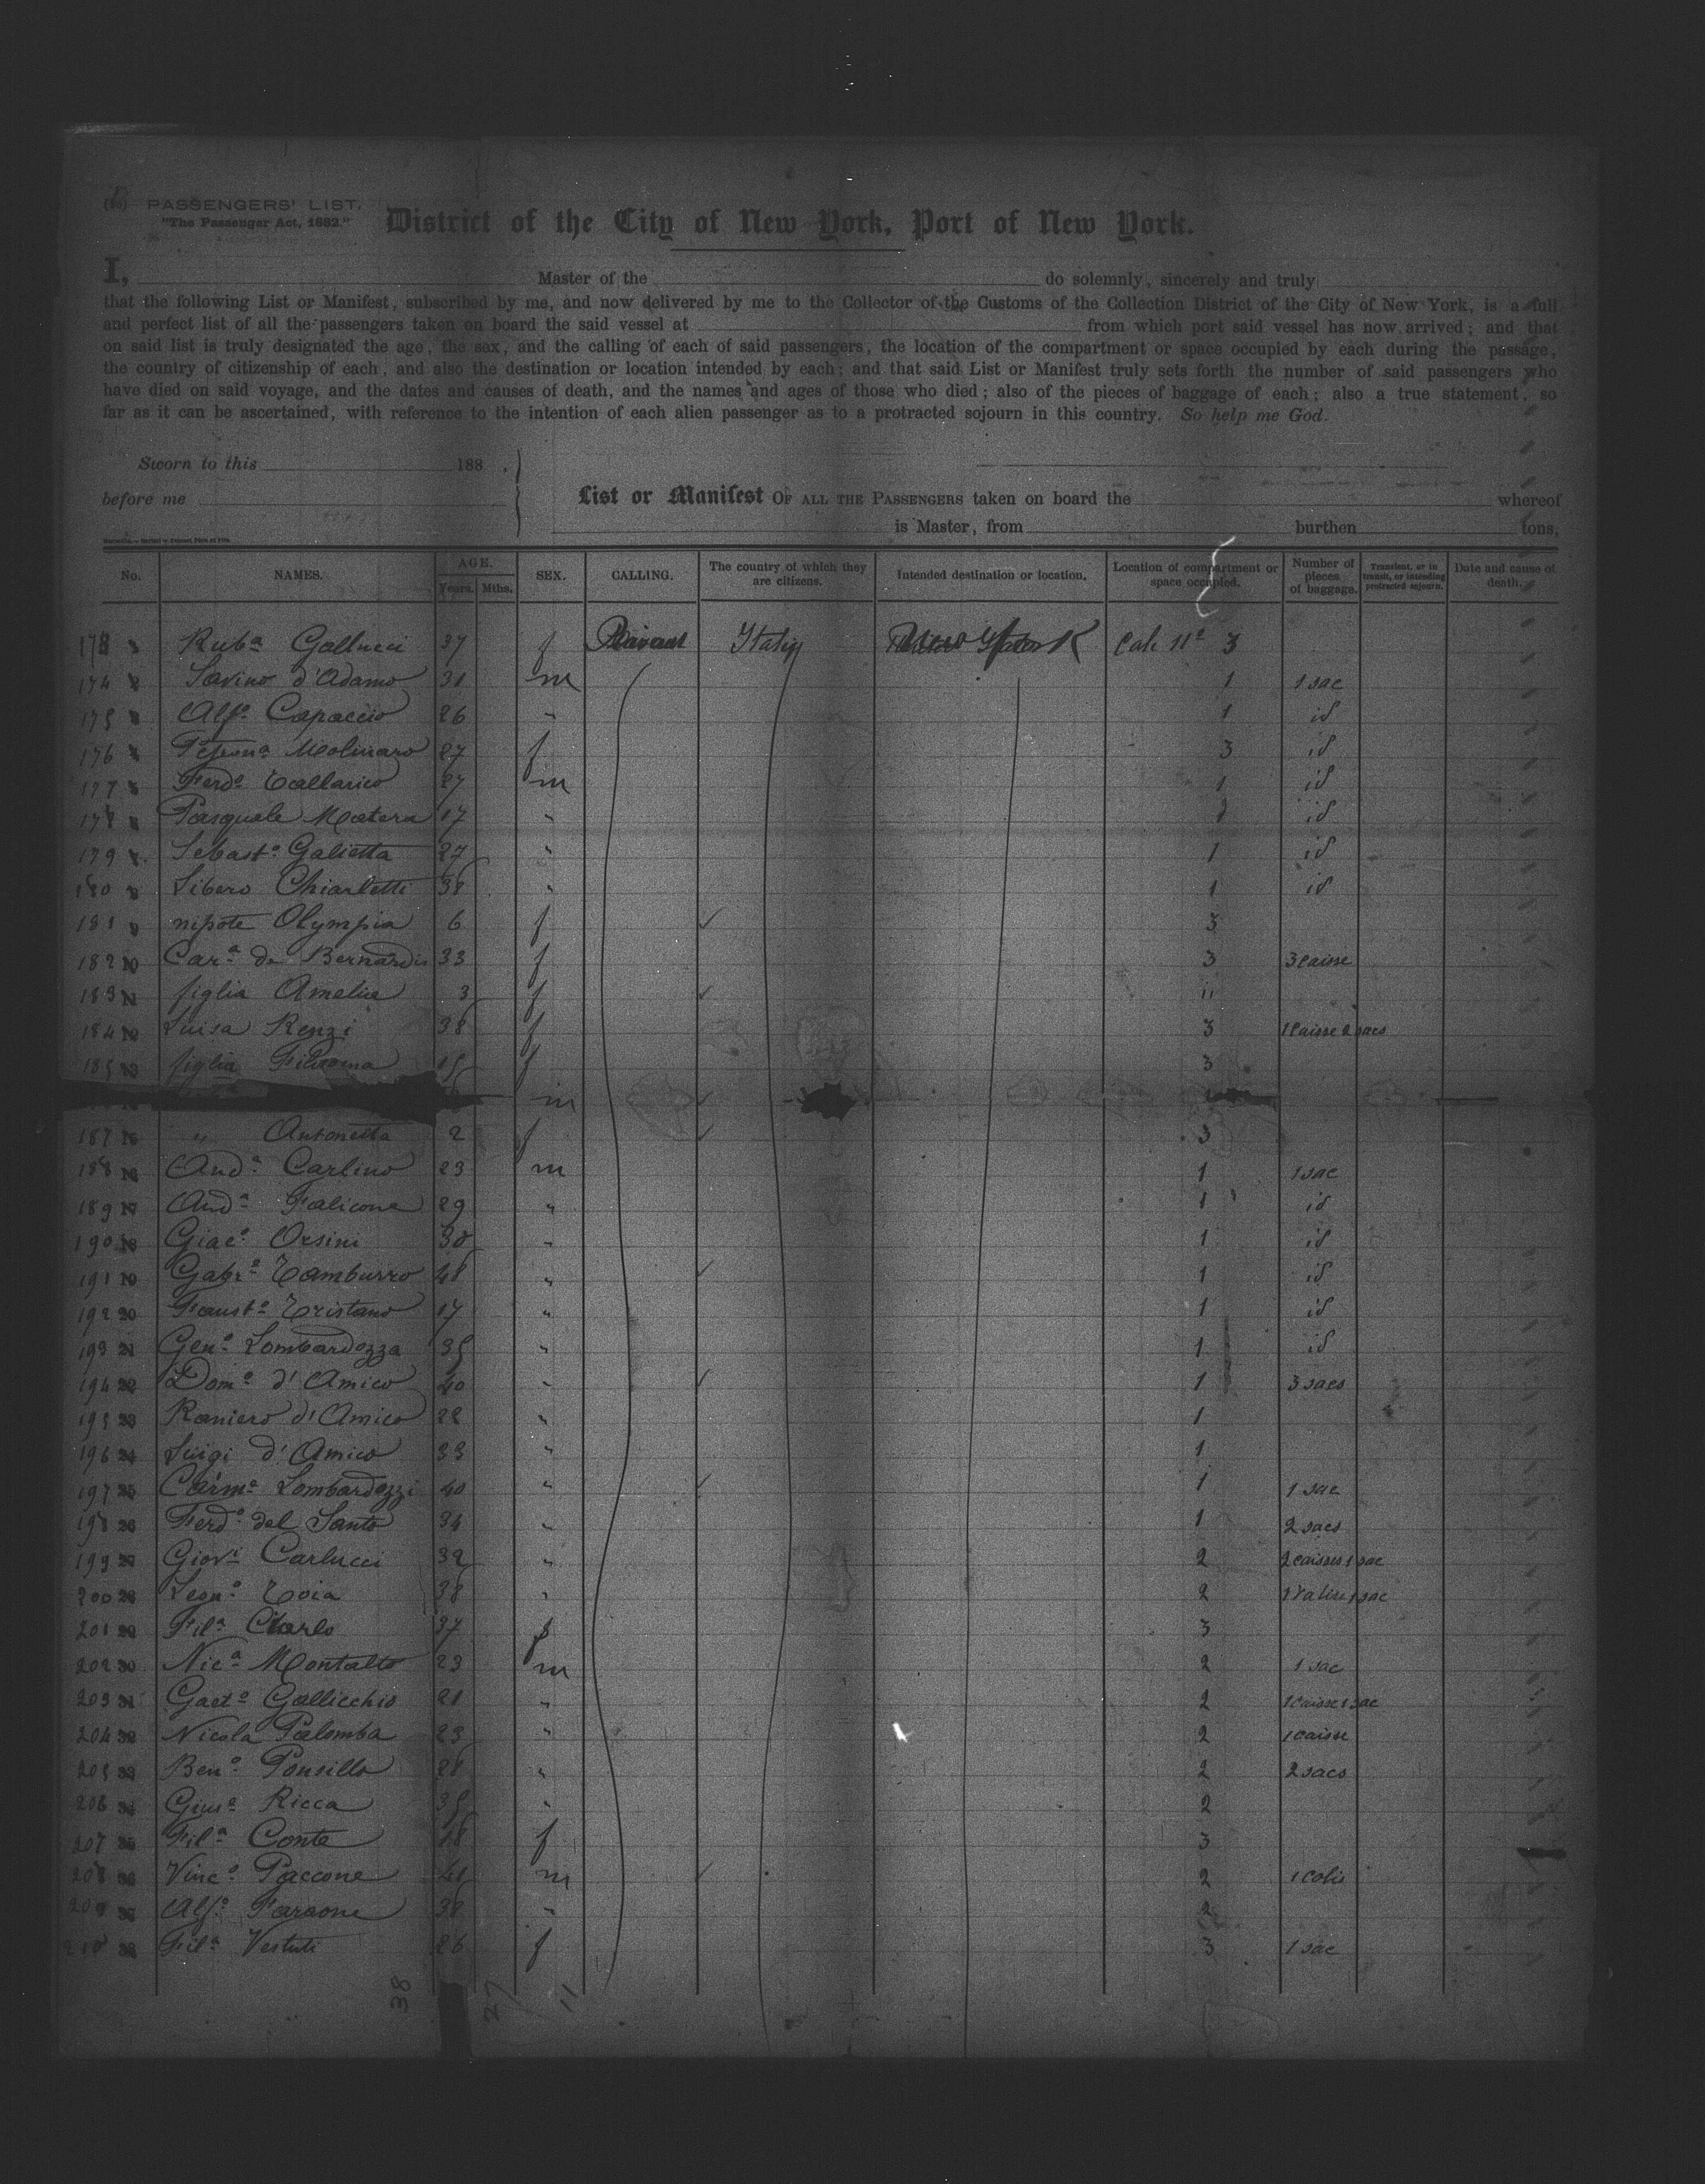 PASSENGERS' LIST.
"The Passenger Act, 1882."
District of the City of New York, Port of New York.
I, Master of the do solemnly, sincerely and truly
that the following List or Manifest, subscribed by me, and now delivered by me to the Collector of the Customs of the Collection District of the City of New York, is a full
and perfect list of all the passengers taken on board the said vessel at from which port said vessel has now arrived; and that
on said list is truly designated the age, the sex, and the calling of each of said passengers, the location of the compartment or space occupied by each during the passage,
the country of citizenship of each, and also the destination or location intended by each; and that said List or Manifest truly sets forth the number of said passengers who
have died on said voyage, and the dates and causes of death, and the names and ages of those who died; also of the pieces of baggage of each; also a true statement, so
far as it can be ascertained, with reference to the intention of each alien passenger as to a protracted sojourn in this country. So help me God.
Sworn to this 188
before me
List or Manifest OF ALL THE PASSENGERS taken on board the whereof
is Master, from burthen tons,
No. NAMES. AGE. Years. Mths. SEX. CALLING. The country of which they are citizens. Intended destination or location. Location of compartment or space occupied. Number of pieces of baggage. Transient, or in transit, or intending protracted sojourn. Date and cause of death.
173 Rubª Gallucci 37 f Italy 3
174 Savino d'Adamo 31 m 1 1 sac
175 Alfº Capaccio 26 " 1 id
176 Molinaro 27 f 3 id
177 Ferdº Tallarico 27 m 1 id
178 Pasquale Matera 17 " 1 id
179 Sebastº Galietta 27 " 1 id
180 Libero Chiarletti 38 " 1 id
181 nipote Olympia 6 f 3
182 Carª de Bernardis 33 f 3 3 caisse
183 figlia Amelia 3 f "
184 Luisa Renzi 38 f 3 1 caisse 2 sacs
185 figlia Filomma 15 f 3
m
187 " Antonetta 2 f 3
188 Andª Carlino 23 m 1 1 sac
189 Andª Falicone 29 " 1 id
190 Giacº Orsini 30 " 1 id
191 Gabrº Tamburro 48 " 1 id
192 Faustº Tristano 17 " 1 id
193 Genº Lombardozza 35 " 1 id
194 Domº d'Amico 40 " 1 3 sacs
195 Raniero d'Amico 22 " 1
196 Luigi d'Amico 33 " 1
197 Carmº Lombardozzi 40 " 1 1 sac
198 Ferdº del Santo 34 " 1 2 sacs
199 Giovⁱ Carlucci 32 " 2 2 caisses 1 sac
200 Leonº Toia 38 " 2 1 valise 1 sac
201 Filª Ciarlo 37 f 3
202 Nicª Montalto 23 m 2 1 sac
203 Gaetº Gallicchio 21 " 2 1 caisse 1 sac
204 Nicola Palomba 23 " 2 1 caisse
205 Benº Ponsillo 28 " 2 2 sacs
206 Giusª Ricca 35 " 2
207 Filª Conte 18 f 3
208 Vincº Paccone 41 m 2 1 colis
209 Alfº Faraone 38 " 2
210 Filª Vestuti 26 f 3 1 sac
38 27 11